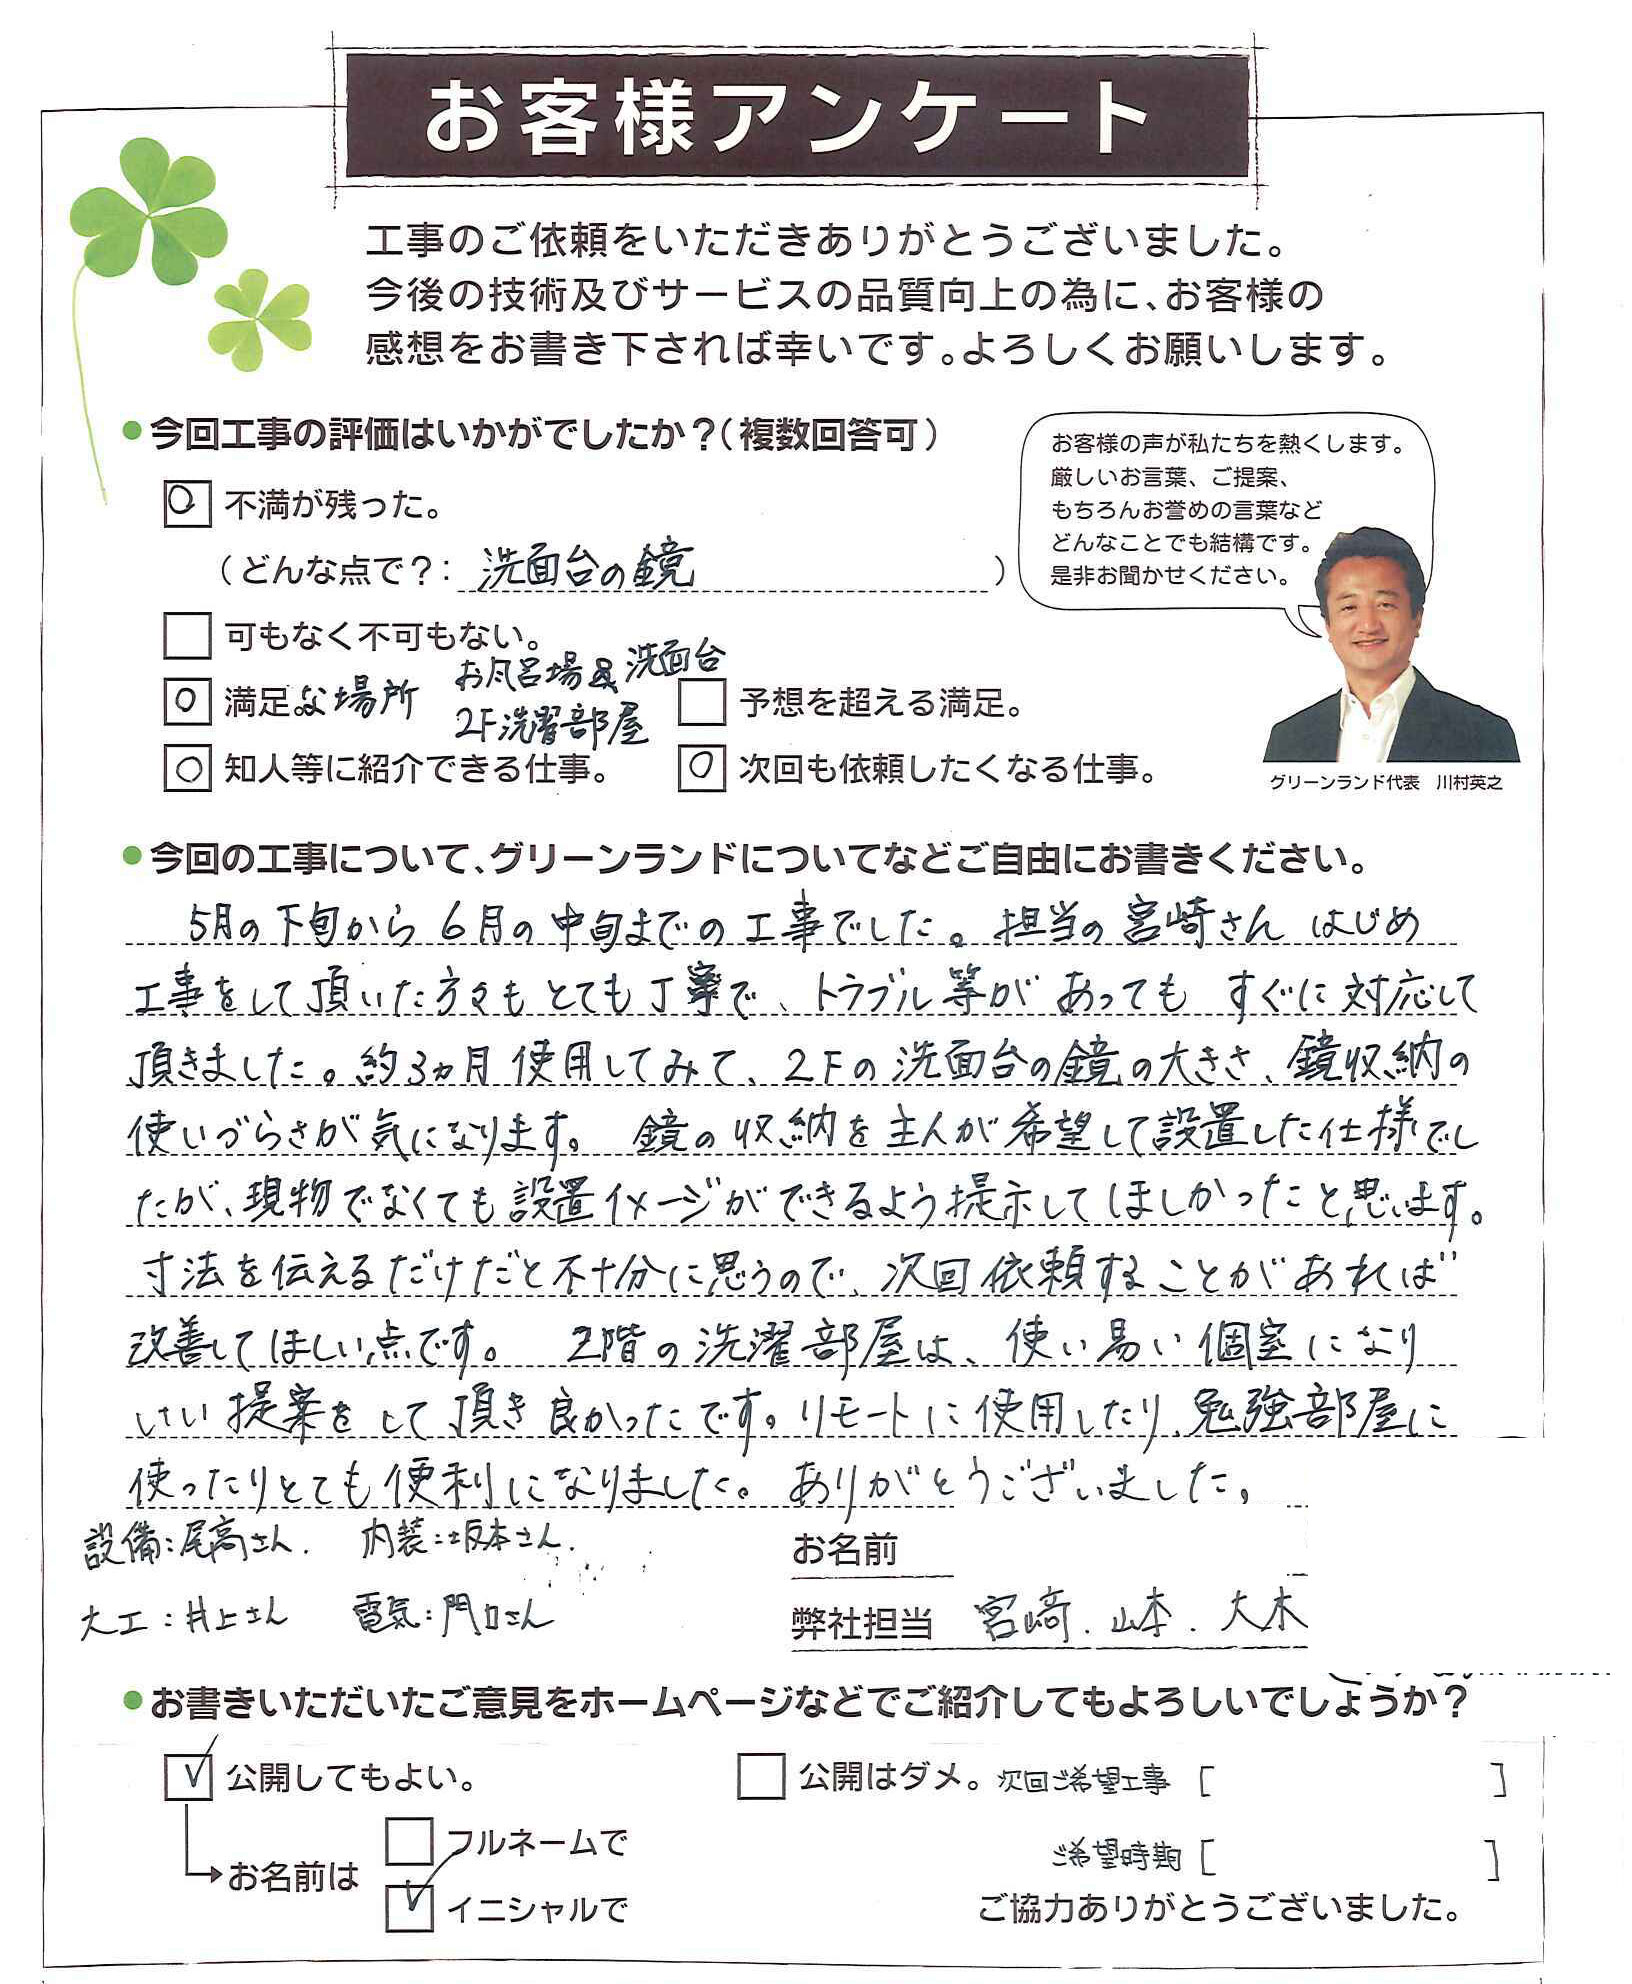 お客様アンケート
工事のご依頼をいただきありがとうございました。
今後の技術及びサービスの品質向上の為に、お客様の
感想をお書き下されば幸いです。よろしくお願いします。
●今回工事の評価はいかがでしたか？（複数回答可）
お客様の声が私たちを熱くします。
厳しいお言葉、ご提案、
もちろんお誉めの言葉など
どんなことでも結構です。
是非お聞かせください。
○ 不満が残った。
（どんな点で？： 洗面台の鏡 ）
可もなく不可もない。
○ 満足な場所 お風呂場 洗面台
2F洗濯部屋
予想を超える満足。
○ 知人等に紹介できる仕事。 ○ 次回も依頼したくなる仕事。
グリーンランド代表 川村英之
●今回の工事について、グリーンランドについてなどご自由にお書きください。
5月の下旬から6月の中旬までの工事でした。担当の宮崎さんはじめ
工事をして頂いた方々もとても丁寧で、トラブル等があってもすぐに対応して
頂きました。約3ヵ月使用してみて、2Fの洗面台の鏡の大きさ、鏡収納の
使いづらさが気になります。 鏡の収納を主人が希望して設置した仕様でし
たが、現物でなくても設置イメージができるよう提示してほしかったと思います。
寸法を伝えるだけだと不十分に思うので、次回依頼することがあれば
改善してほしい点です。 2階の洗濯部屋は、使い易い個室になり
いい提案をして頂き良かったです。リモートに使用したり、勉強部屋に
使ったりとても便利になりました。ありがとうございました。
設備：尾高さん. 内装：坂本さん.
大工：井上さん 電気：門口さん
お名前
弊社担当 宮崎．山本．大木
●お書きいただいたご意見をホームページなどでご紹介してもよろしいでしょうか？
✓ 公開してもよい。 公開はダメ。 次回ご希望工事 [ ]
→お名前は フルネームで
ご希望時期 [ ]
✓ イニシャルで
ご協力ありがとうございました。